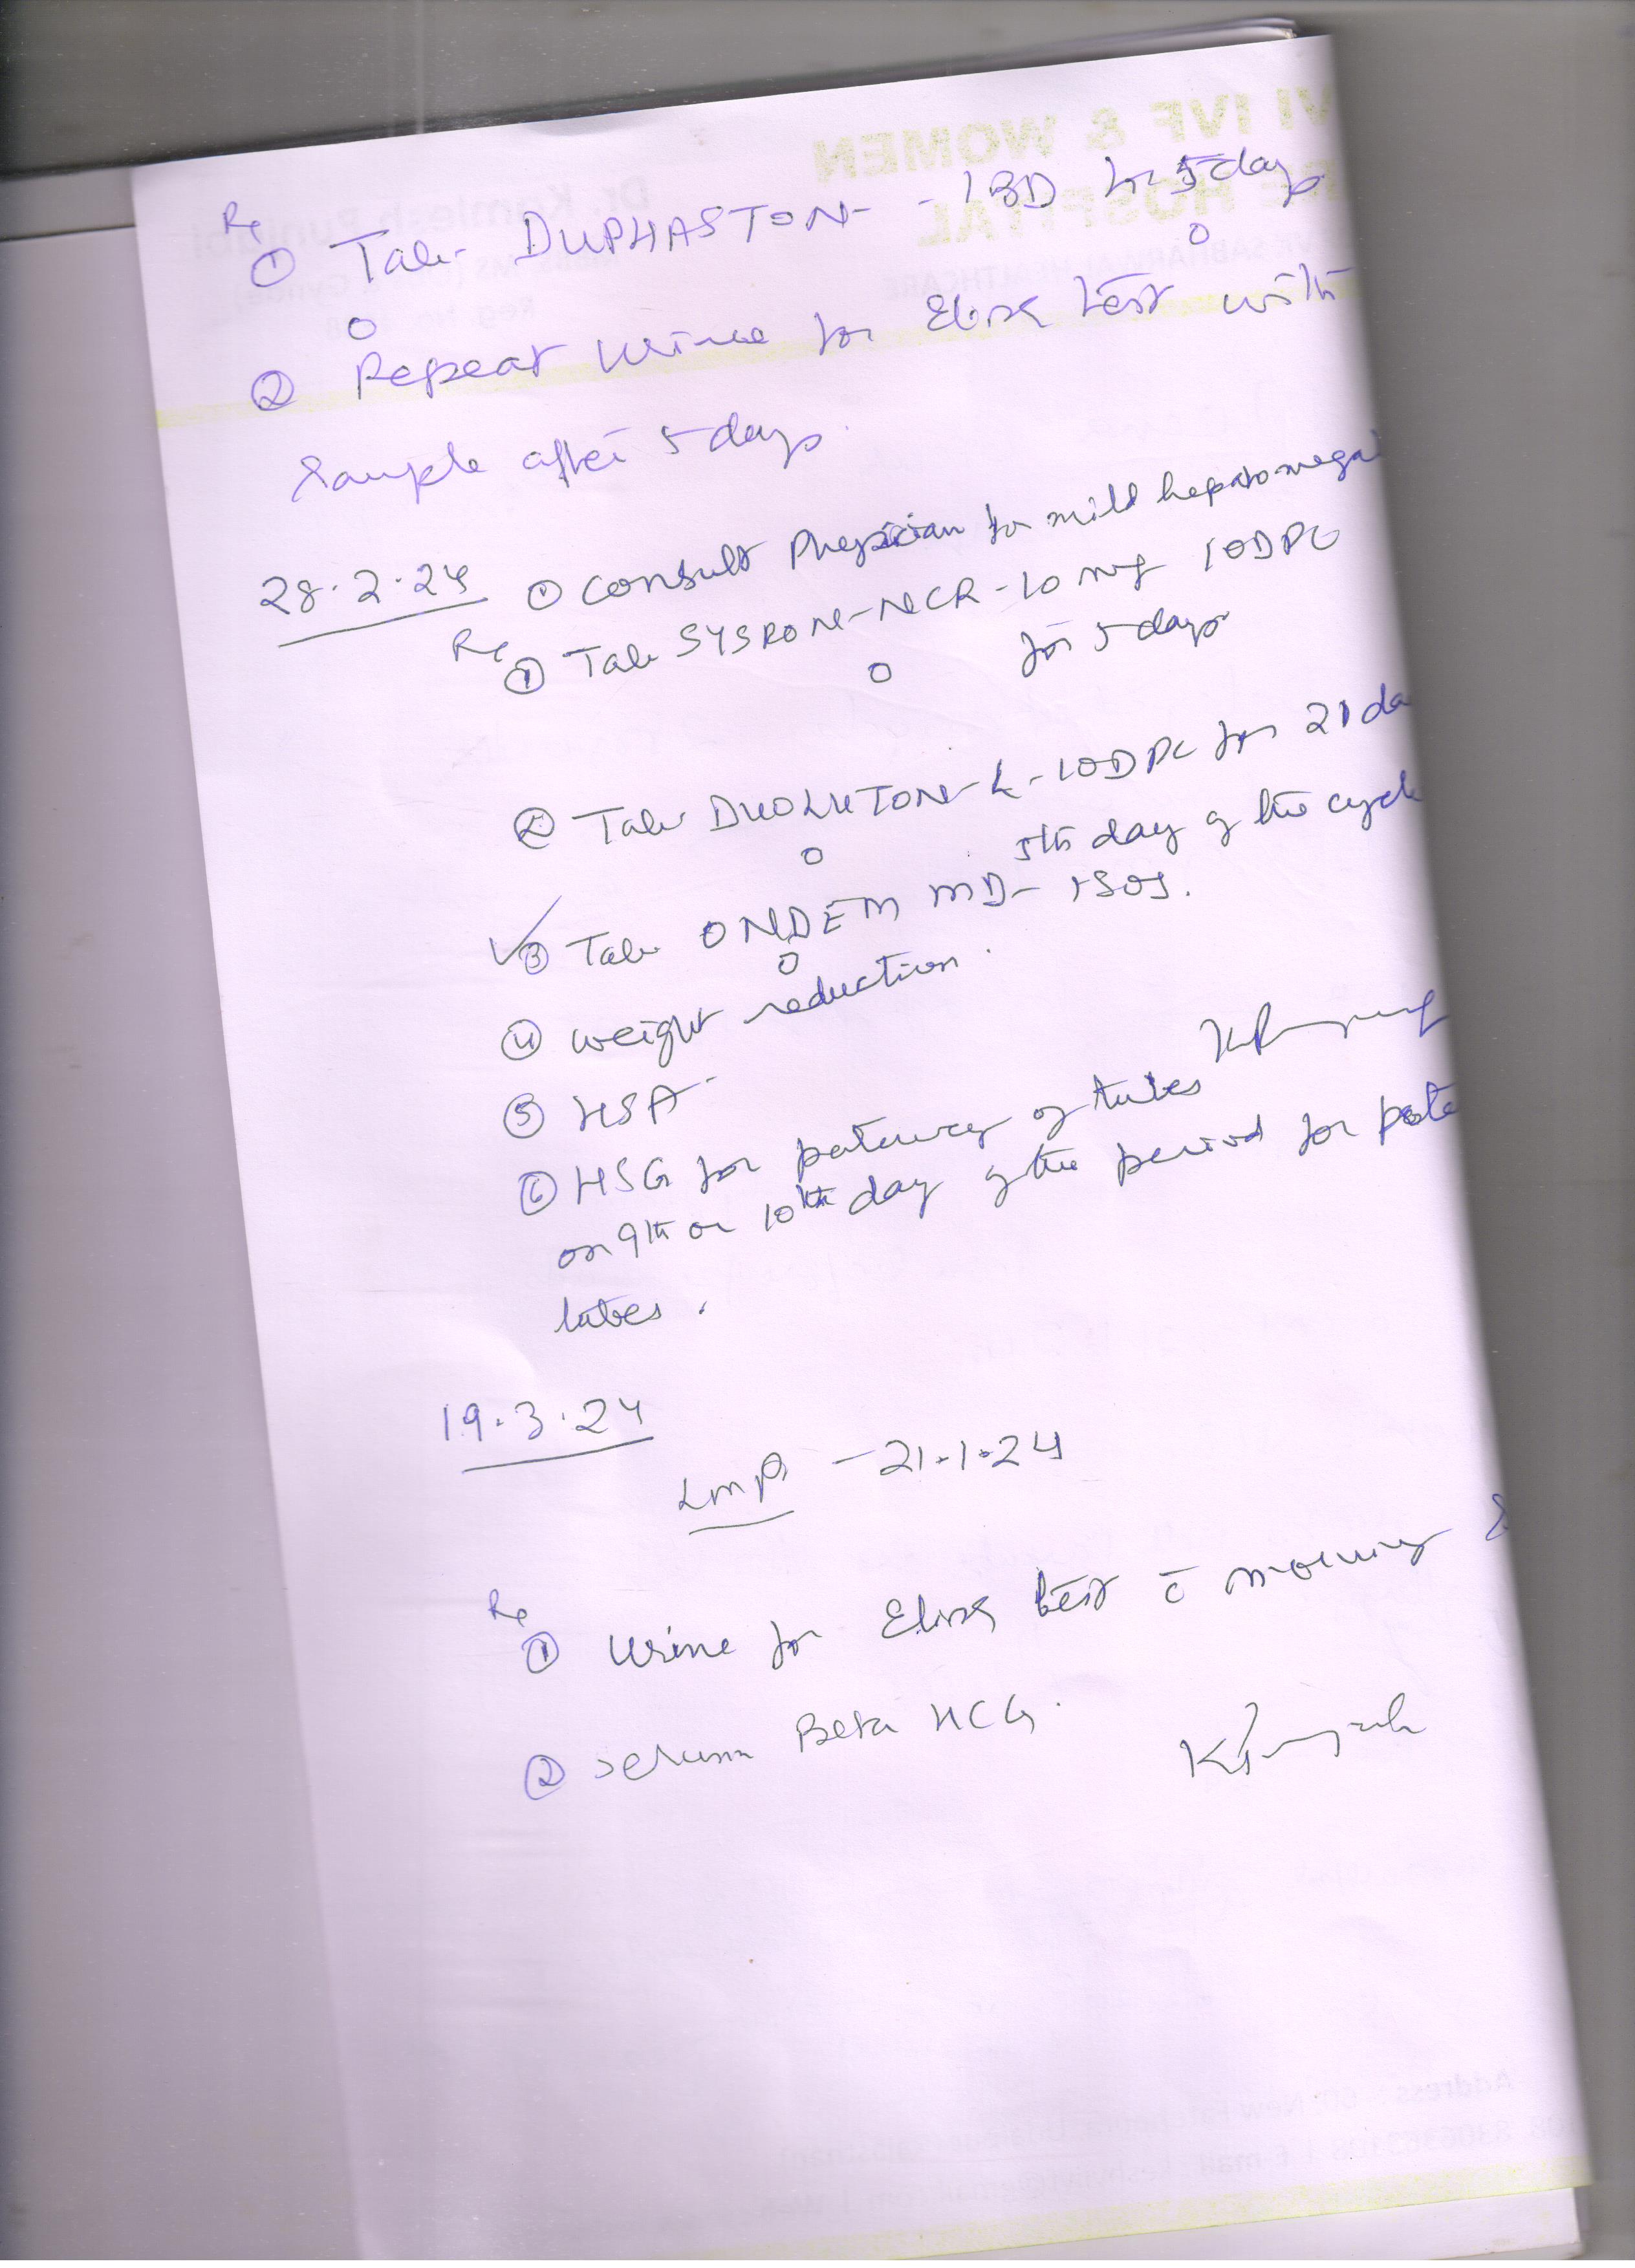 Rx
① Tab. DUPHASTON - 1BD for 5 days
② Repeat Urine for Elisa test with
Sample after 5 days.
28.2.24 ① Consult Physician for mild hepatomega
Rx
① Tab SYSRON-NCR-10 mg 1ODPC
for 5 days
② Tab DUOLUTON-L-1ODPC for 21 da
5th day of the cycle
③ Tab ONDEM MD- 1SOS.
④ weight reduction.
⑤ HSA
⑥ HSG for patency of tubes
on 9th or 10th day of the period for pate
tubes.
19.3.24
LMP - 21.1.24
Rx
① Urine for Elisa test c̄ morning S
② serum Beta HCG.
VI IVF & WOMEN
RE HOSPITAL
Dr. Kamlesh Punjabi